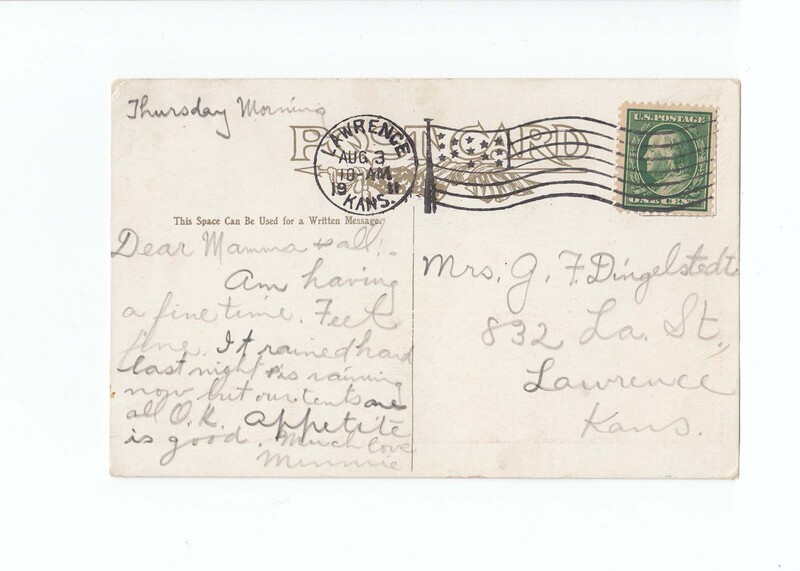 Thursday Morning
POST CARD
LAWRENCE
AUG 3
10-AM
1911
KANS.
U.S. POSTAGE
ONE CENT
This Space Can Be Used for a Written Message.
Dear Mamma & all:-
Am having
a fine time. Feel
fine. It rained hard
last night & is raining
now but our tents are
all O.K. Appetite
is good. Much love
Minnie
Mrs. G. F. Dingelstedt
832 La. St.,
Lawrence
Kans.